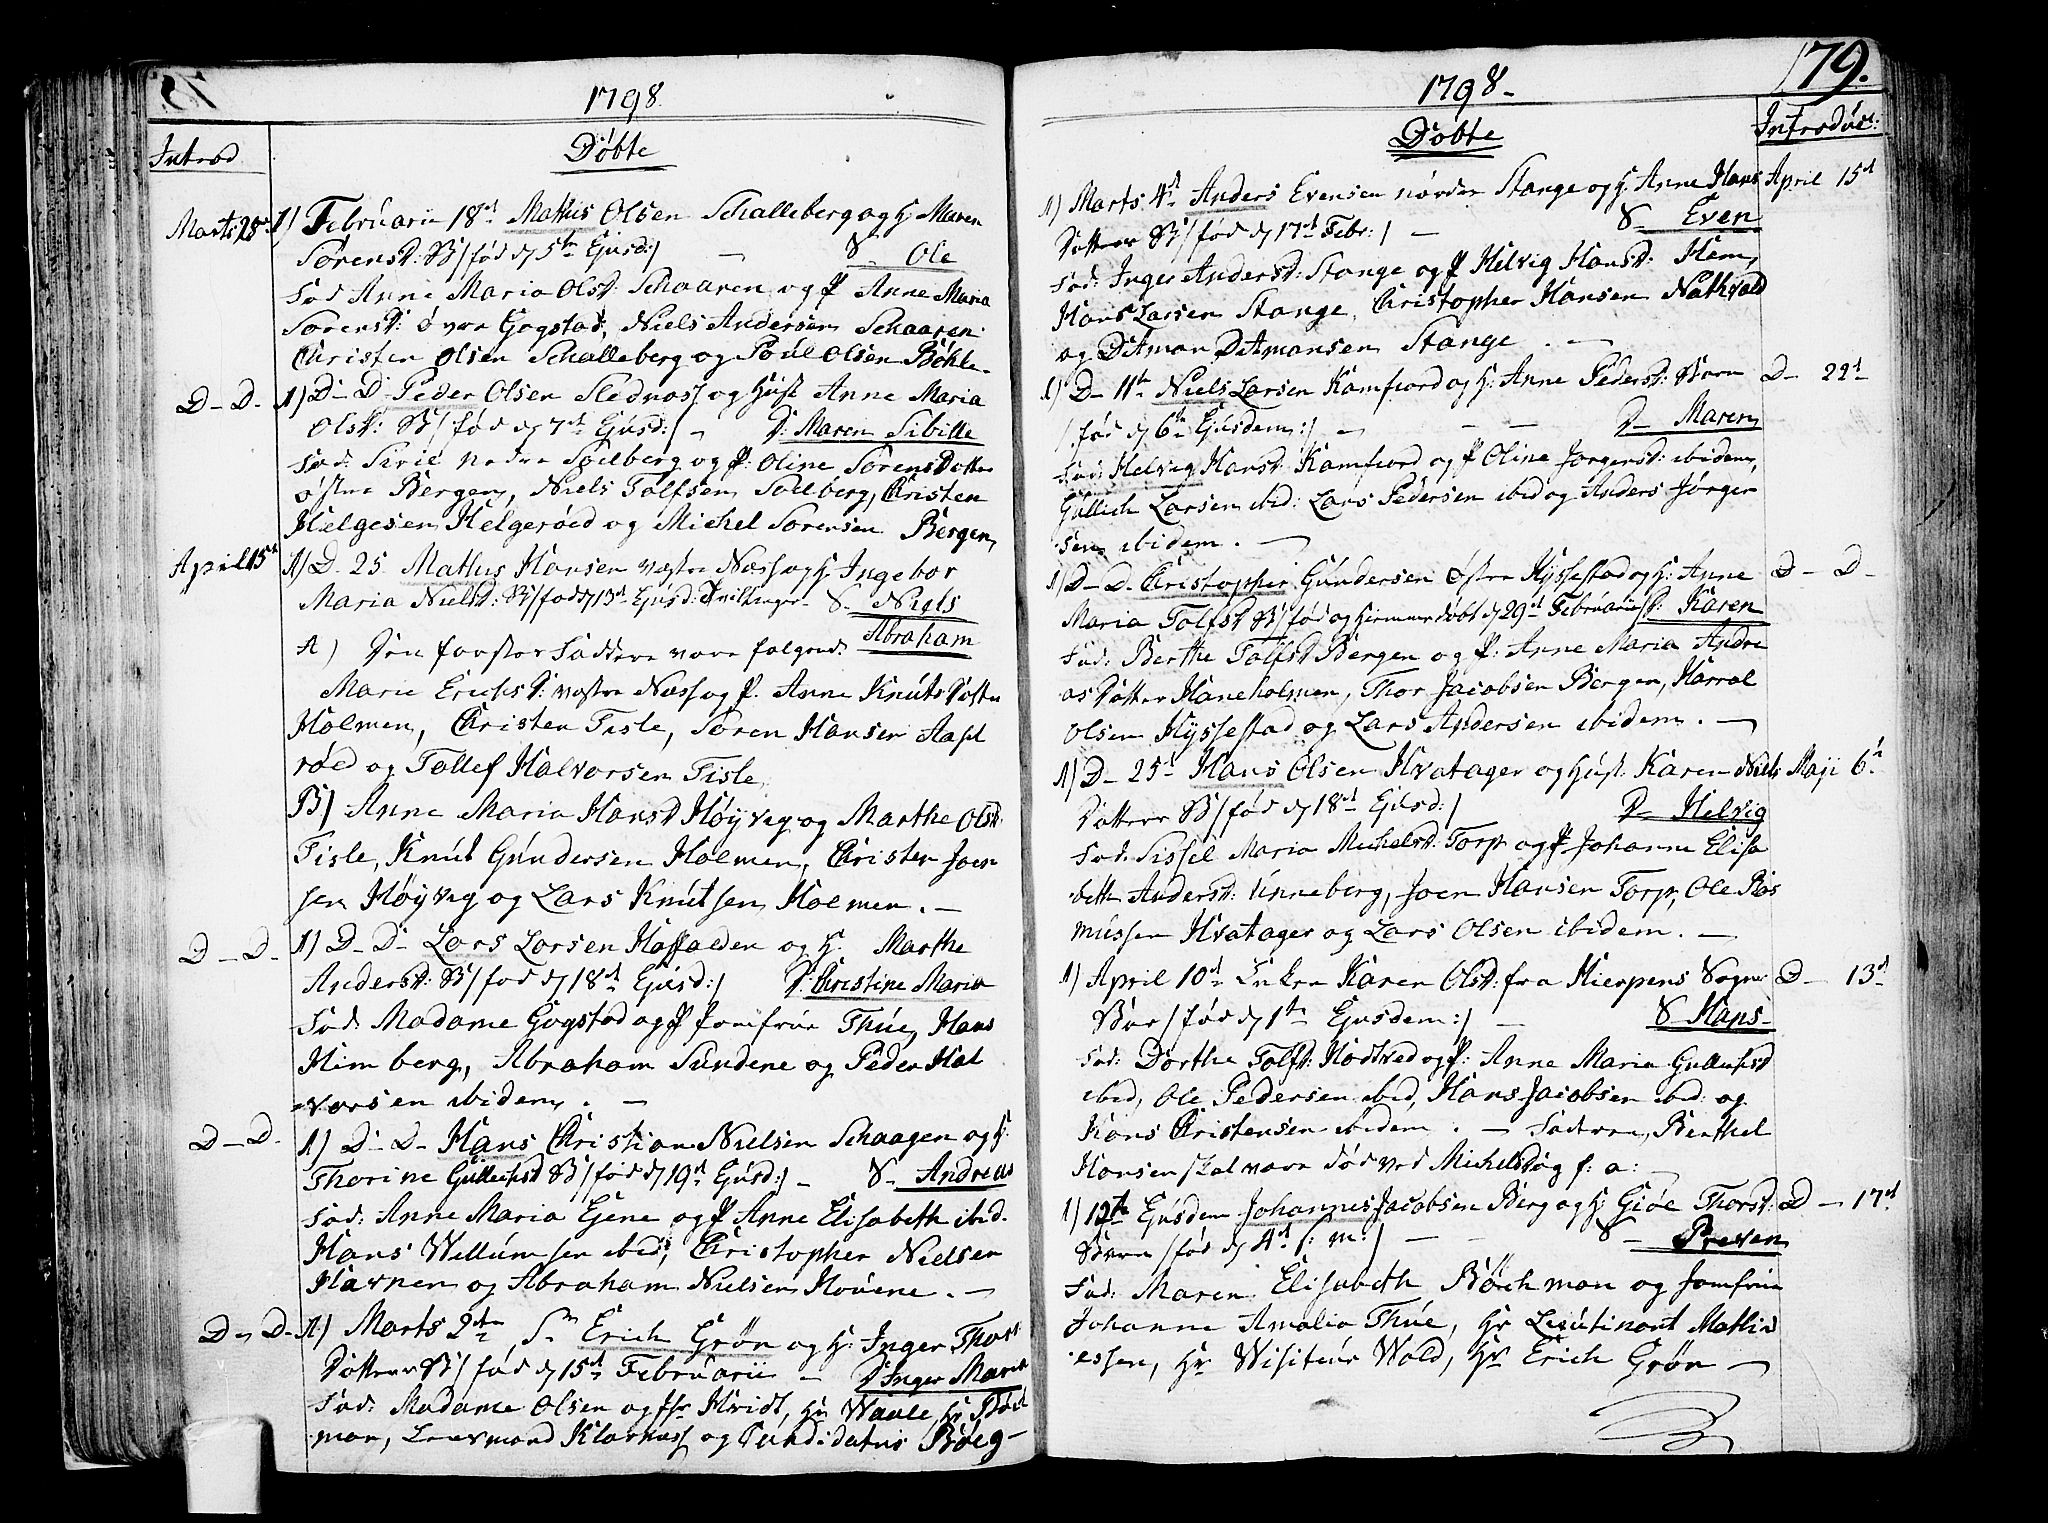 1798.
Introd
Döbte
Marts 25 1) Februarii 18d Mathis Olsen Schalleberg og H: Maren
Sörensd: B/ föd d 5te Ejusd:/ - S. Ole
Fad Anne Maria Olsd: Schaaren og P Anne Maria
Sorensd: övre Gogstad, Niels Andersen Schaaren
Christen Olsen Schalleberg og Poul Olsen Böhle.
D - D. 1) D - D Peder Olsen Slednass og Hust Anne Maria
Olsd: B/ föd d 7d Ejusd:/ - D: Maren Sibille
Fad: Sirie nedre Soelberg og P: Oline Sorens Datter
östre Bergen, Niels Tolfsen Solberg, Christen
Helgesen Helgeröed og Michel Sorensen Bergen,
April 15d 1) D. 25. Mathis Hansen vestre Næss og H: Ingebor
Maria Nielsd: B/ föd d 13d Ejusd: Tvillinger - S. Niels
Abraham
A) Den förstes Faddere vare fölgend:
Marie Erichsd: vestre Næss og P. Anne Knuts Datter
Holmen, Christen Fisle, Sören Hansen Aasl
röed og Tollef Halvorsen Fisle.
B/ Anne Maria Hansd Höyveg og Marthe Olsd:
Fisle, Knut Gundersen Holmen, Christen Joen
sen Höyveg og Lars Knutsen Holmen. -
D - D. 1) D - D - Lars Larsen Haffalden og H. Marthe
Andersd: B/ föd d 18d Ejusd:/ D: Christine Maria
Fad: Madame Gogstad og P Jomfrue Thue, Hans
Himberg, Abraham Sundene og Peder Hal
vorsen ibidem. -
D - D. 1) D - D - Hans Christian Nielsen Schaagen og H:
Thorine Gullichsd B/ föd d 19d Ejusd:/ - S - Andreas
Fad: Anne Maria Ejene og P Anne Elisabeth ibid.
Hans Willumsen ibid, Christopher Nielsen
Havnen og Abraham Nielsen Hovene. -
D - D - 1) Marts 2den Sr Erich Grön og H: Inger Thors
Datters B/ föd d 15d Februarii - D Inger Maria
Fad: Madame Olsen og Hvidt, Hr Waale, Hr Böck
man, Leusmand Klavness og Candidatus Böeg -
1798.
79.
Introduc:
Döbte
1) Marts 4d Anders Evensen nordre Stange og H: Anne Hans April 15d
Datters B/ föd d 17d Febr:/ - S. Even
Fad: Inger Andersd: Stange og P Helvig Hansd: Hem,
Hans Larsen Stange, Christopher Hansen Nathvad
og Ditman Ditmansen Stange. -
1) D - 11te Niels Larsen Kamfiord og H: Anne Pedersd: Barn D - 22d
/ föd d 6te Ejusdem:/ - - - D - Maren
Fad: Helvig Hansd: Kamfiord og P Oline Jorgensd: ibidem,
Gullich Larsen ibid: Lars Pedersen ibid og Anders Jörgen
sen ibidem. -
1) D - D. Christopher Gundersen östre Hyssestad og H: Anne D - D -
Maria Tolfsd B/ föd og hiemmedöbt d 29d Februarii/ D: Karen
Fad: Berthe Tolfsd Bergen og P: Anne Maria Andre
as Datter Haneholmen, Thor Jacobsen Bergen, Harral
Olsen Hyssestad og Lars Andersen ibidem. -
1) D - 25d Hans Olsen Hvatager og Hust Karen Niels Maji 6te
Datters B/ föd d 18d Ejusd:/ D - Helvig
Fad: Sissel Maria Michelsd: Torp og P Johanne Elisa
beth Andersd: Unneberg, Joen Hansen Torp, Ole Ras
mussen Hvatager og Lars Olsen ibidem. -
1) April 10d Enken Karen Olsd: fra Hierpens Sogn D - 13d
Bar/ föd d 1te Ejusdem:/ - S Hans -
Fad: Dorthe Tolfsd: Hodtved og P: Anne Maria Gullichsd
ibid, Ole Pedersen ibid, Hans Jacobsen ibid og
Hans Christensen ibidem. - Faderen, Berthel
Hansen skal være död ved Michelsdag f: a: -
1) 12te Ejusdem Johannes Jacobsen Berg og H: Giöe Thorsd: D - 17d
Barn / föd d 4d h: m:/ - - S - Preven
Fad: Maren Elisabeth Böchman og Jomfrue
Johanne Amalia Thue, Hr Lieutinant Mathi
essen, Hr Wisiteur Wold, Hr Erich Grön -